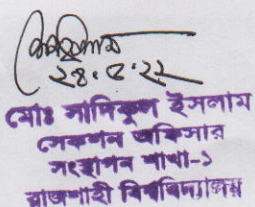 ২৪.৫.২২
মোঃ সাদিকুল ইসলাম
সেকশন অফিসার
সংস্থাপন শাখা-১
রাজশাহী বিশ্ববিদ্যালয়